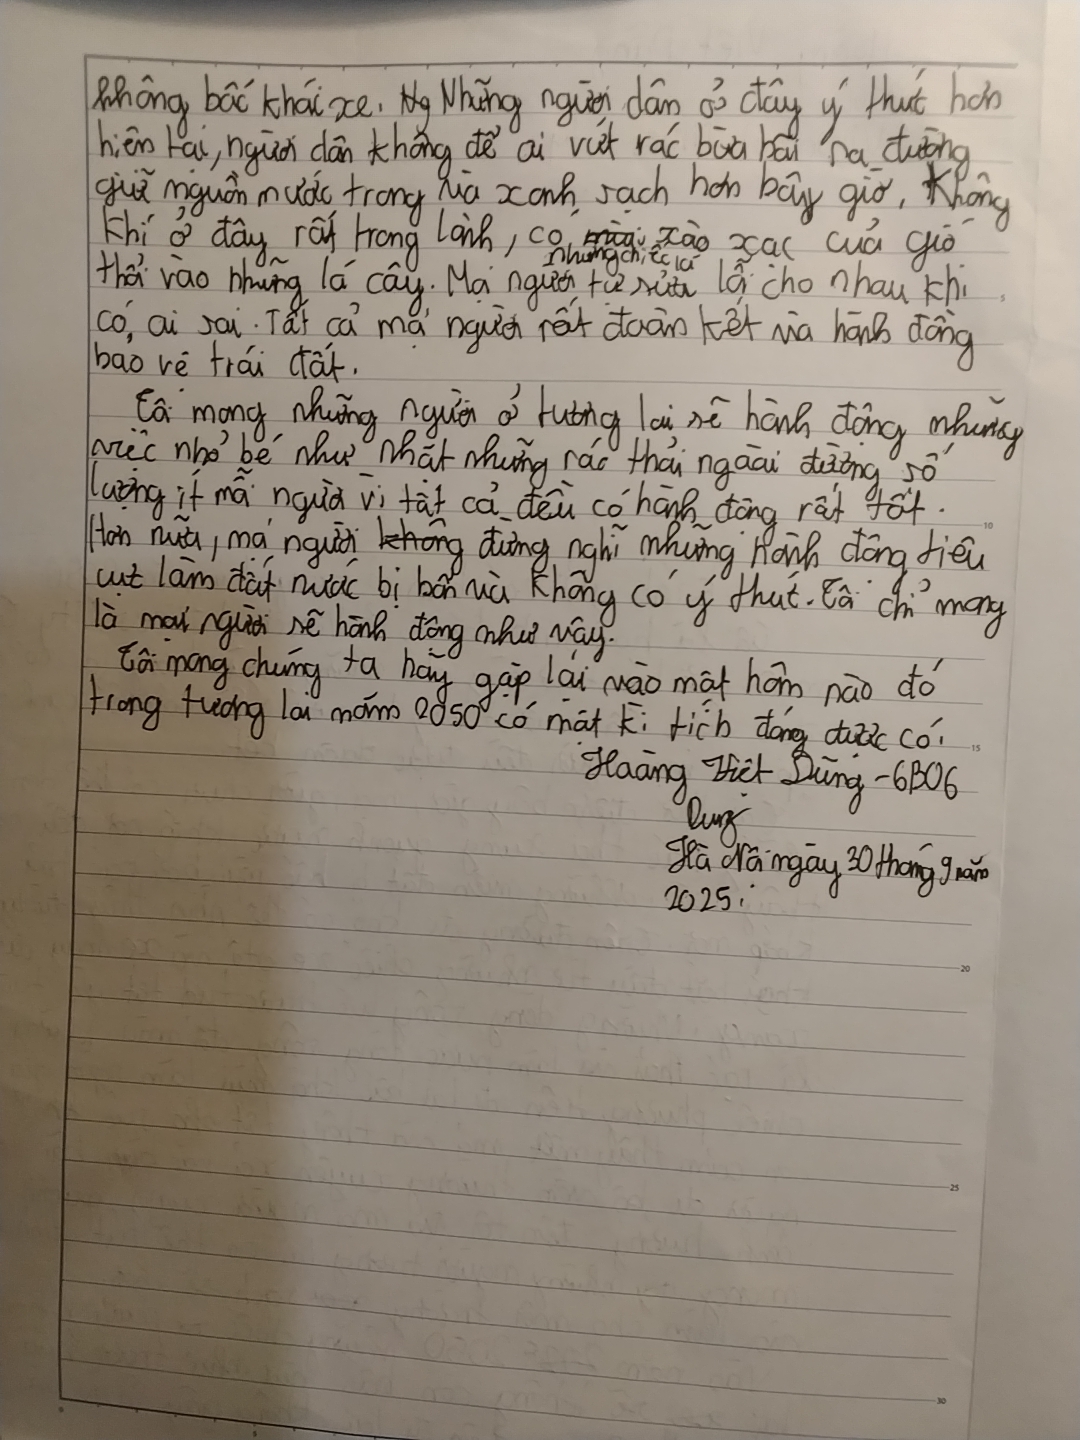 không bốc khói xe. Ng Những người dân ở đây ý thức hơn
hiện tại, người dân không để ai vứt rác bừa bãi ra đường
giữ nguồn nước trong và xanh sạch hơn bây giờ. Không
khí ở đây rất trong lành, có mùi xào xạc của gió
những chiếc lá
thổi vào những lá cây. Mọi người tự sửa lỗi cho nhau khi
có ai sai. Tất cả mọi người rất đoàn kết và hành động
bảo vệ trái đất.
Tôi mong những người ở tương lai sẽ hành động những
việc nhỏ bé như nhặt những rác thải ngoài đường số
lượng ít mỗi người vì tất cả đều có hành động rất tốt.
Hơn nữa, mọi người không đừng nghĩ những hành động tiêu
cực làm đất nước bị bẩn và không có ý thức. Tôi chỉ mong
là mọi người sẽ hành động như vậy.
Tôi mong chúng ta hãy gặp lại vào một hôm nào đó
trong tương lai năm 2050 có một kì tích đáng được có.
Hoàng Việt Dũng - 6B06
Dung
Hà Nội ngày 30 tháng 9 năm
2025.
5
10
15
20
25
30
0
5